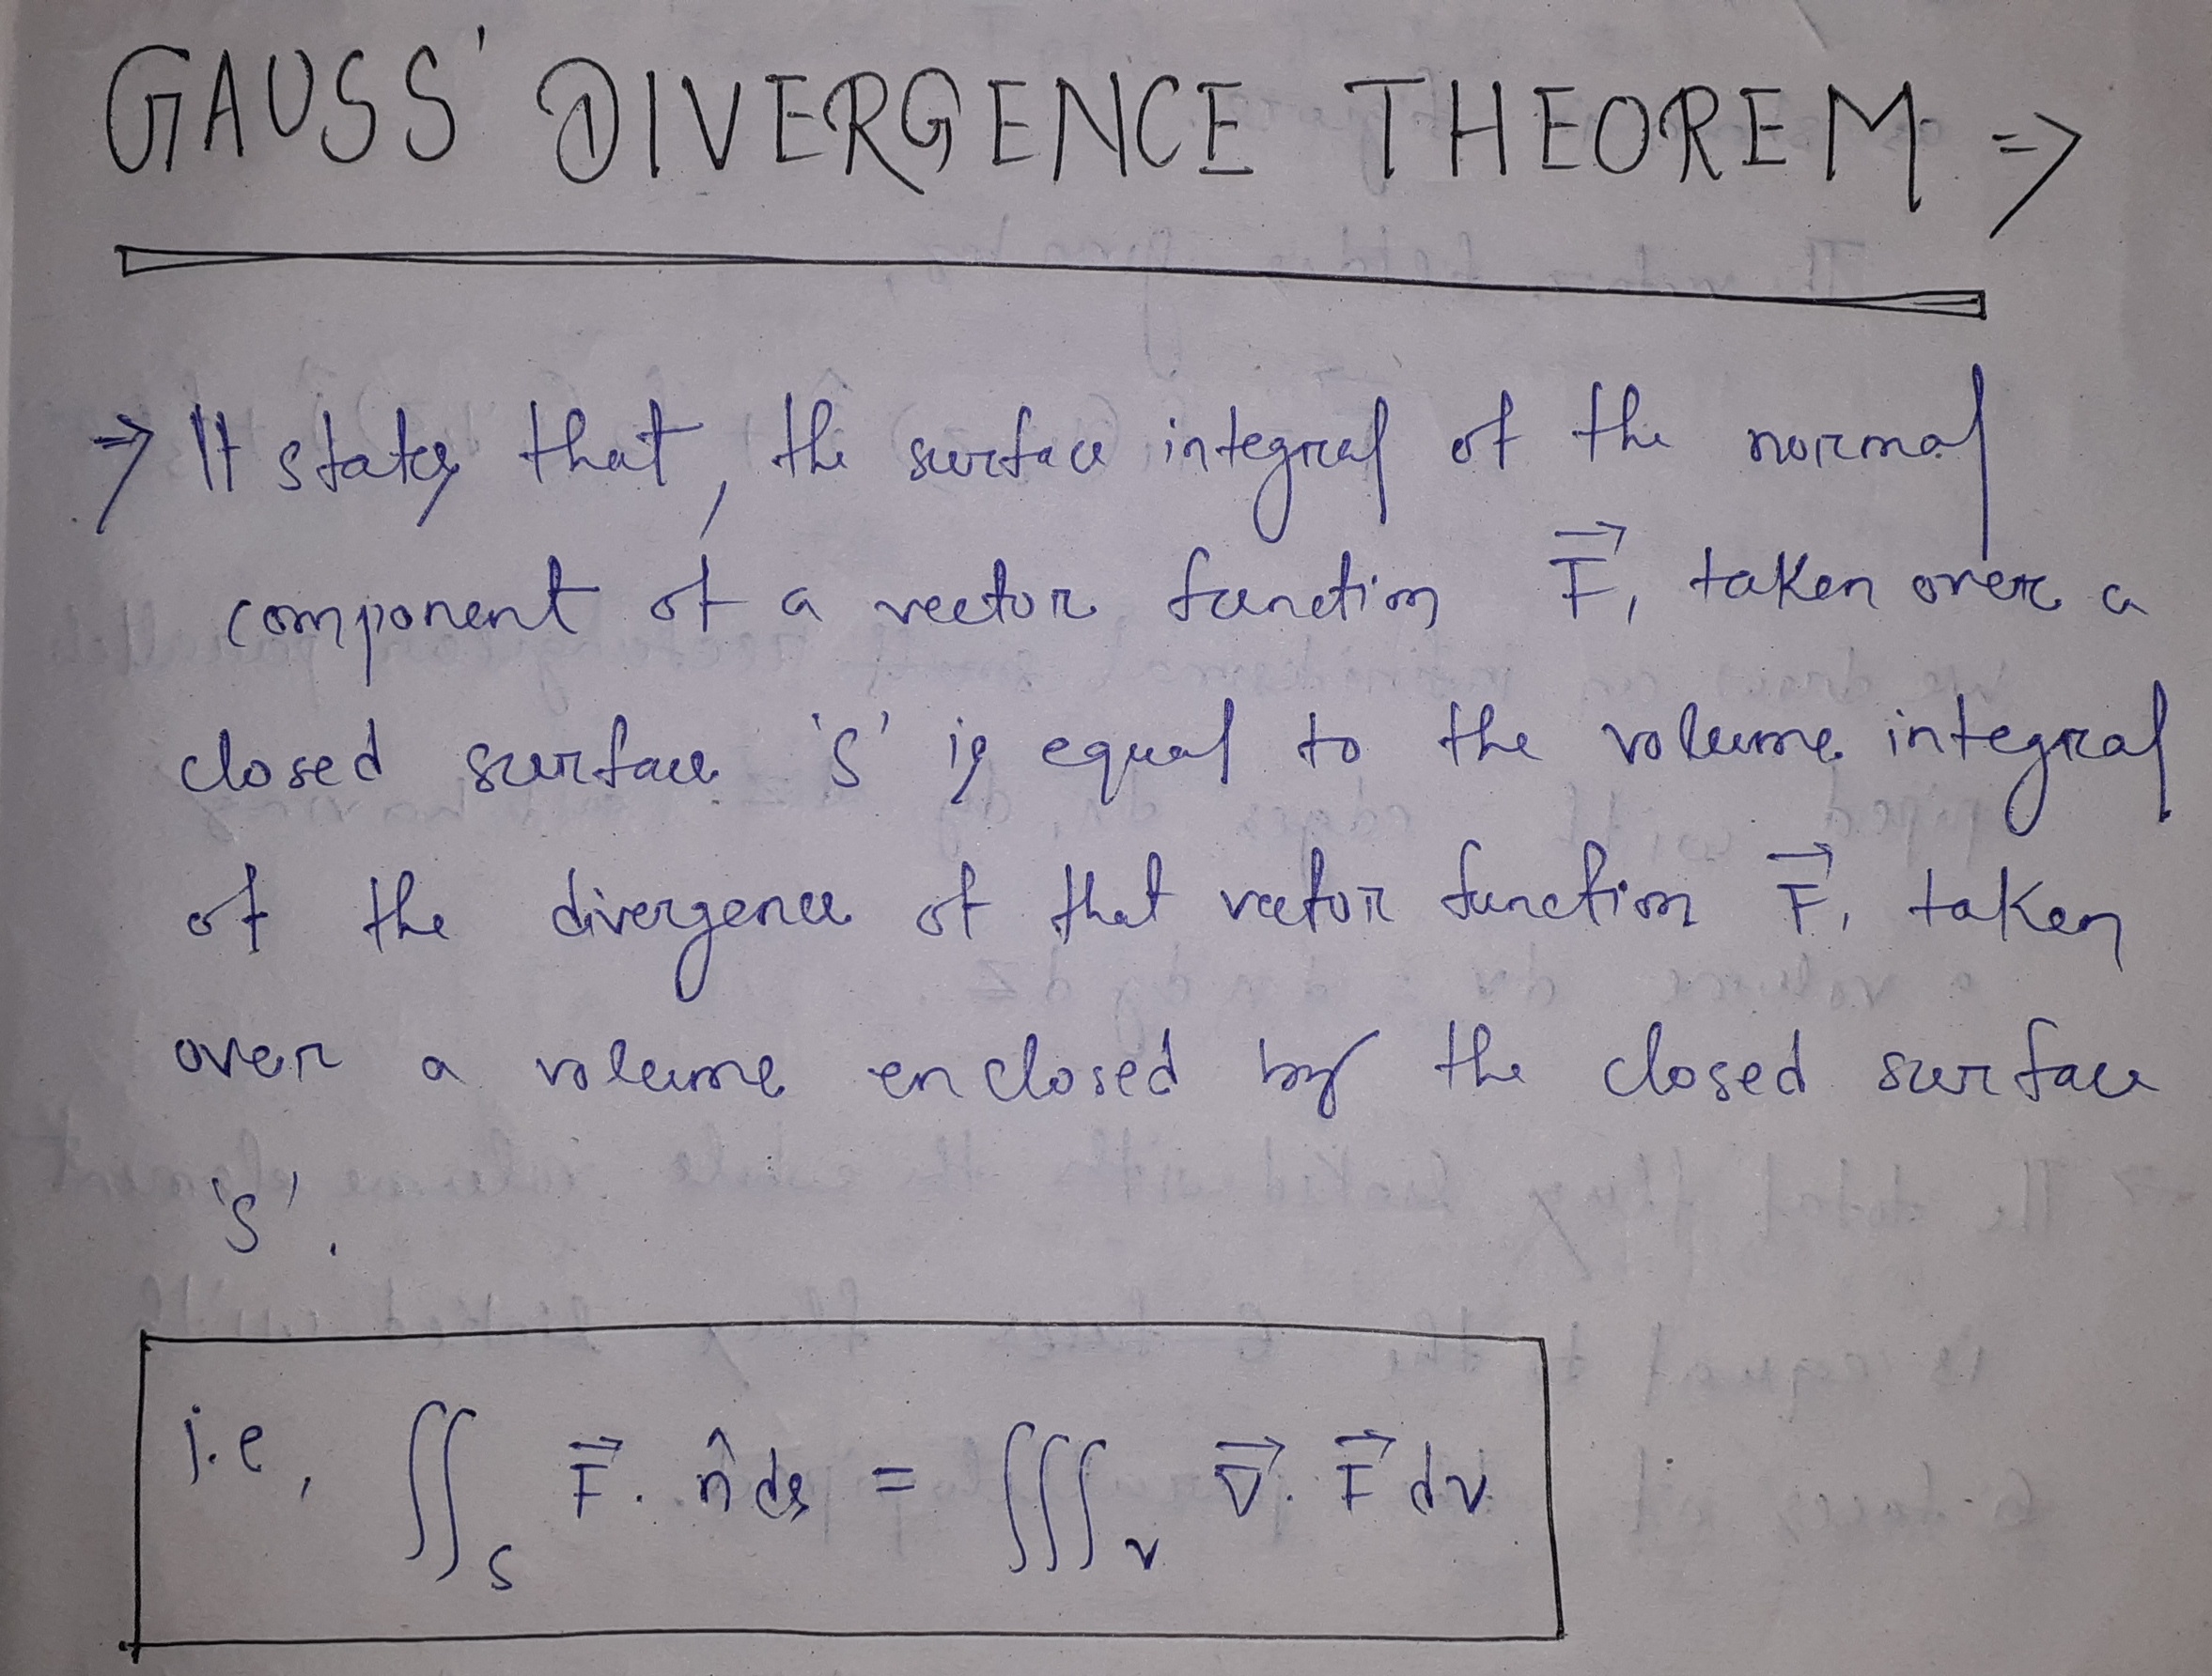 GAUSS' DIVERGENCE THEOREM =>
→ It states that, the surface integral of the normal
component of a vector function F⃗, taken over a
closed surface 'S' is equal to the volume integral
of the divergence of that vector function F⃗, taken
over a volume enclosed by the closed surface
'S'.
i.e, ∬_S F⃗. n̂ ds = ∭_V ∇⃗. F⃗ dv